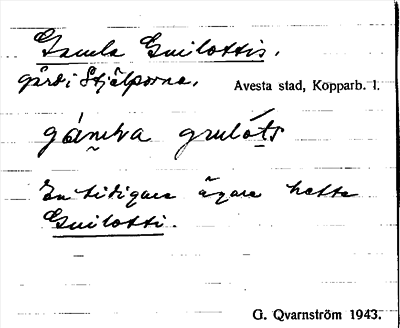 Gamla Guilottis.
gård i Stjälporna. Avesta stad, Kopparb. l.
gámḽa grulóts
En tidigare ägare hette
Guilotti.
G. Qvarnström 1943.